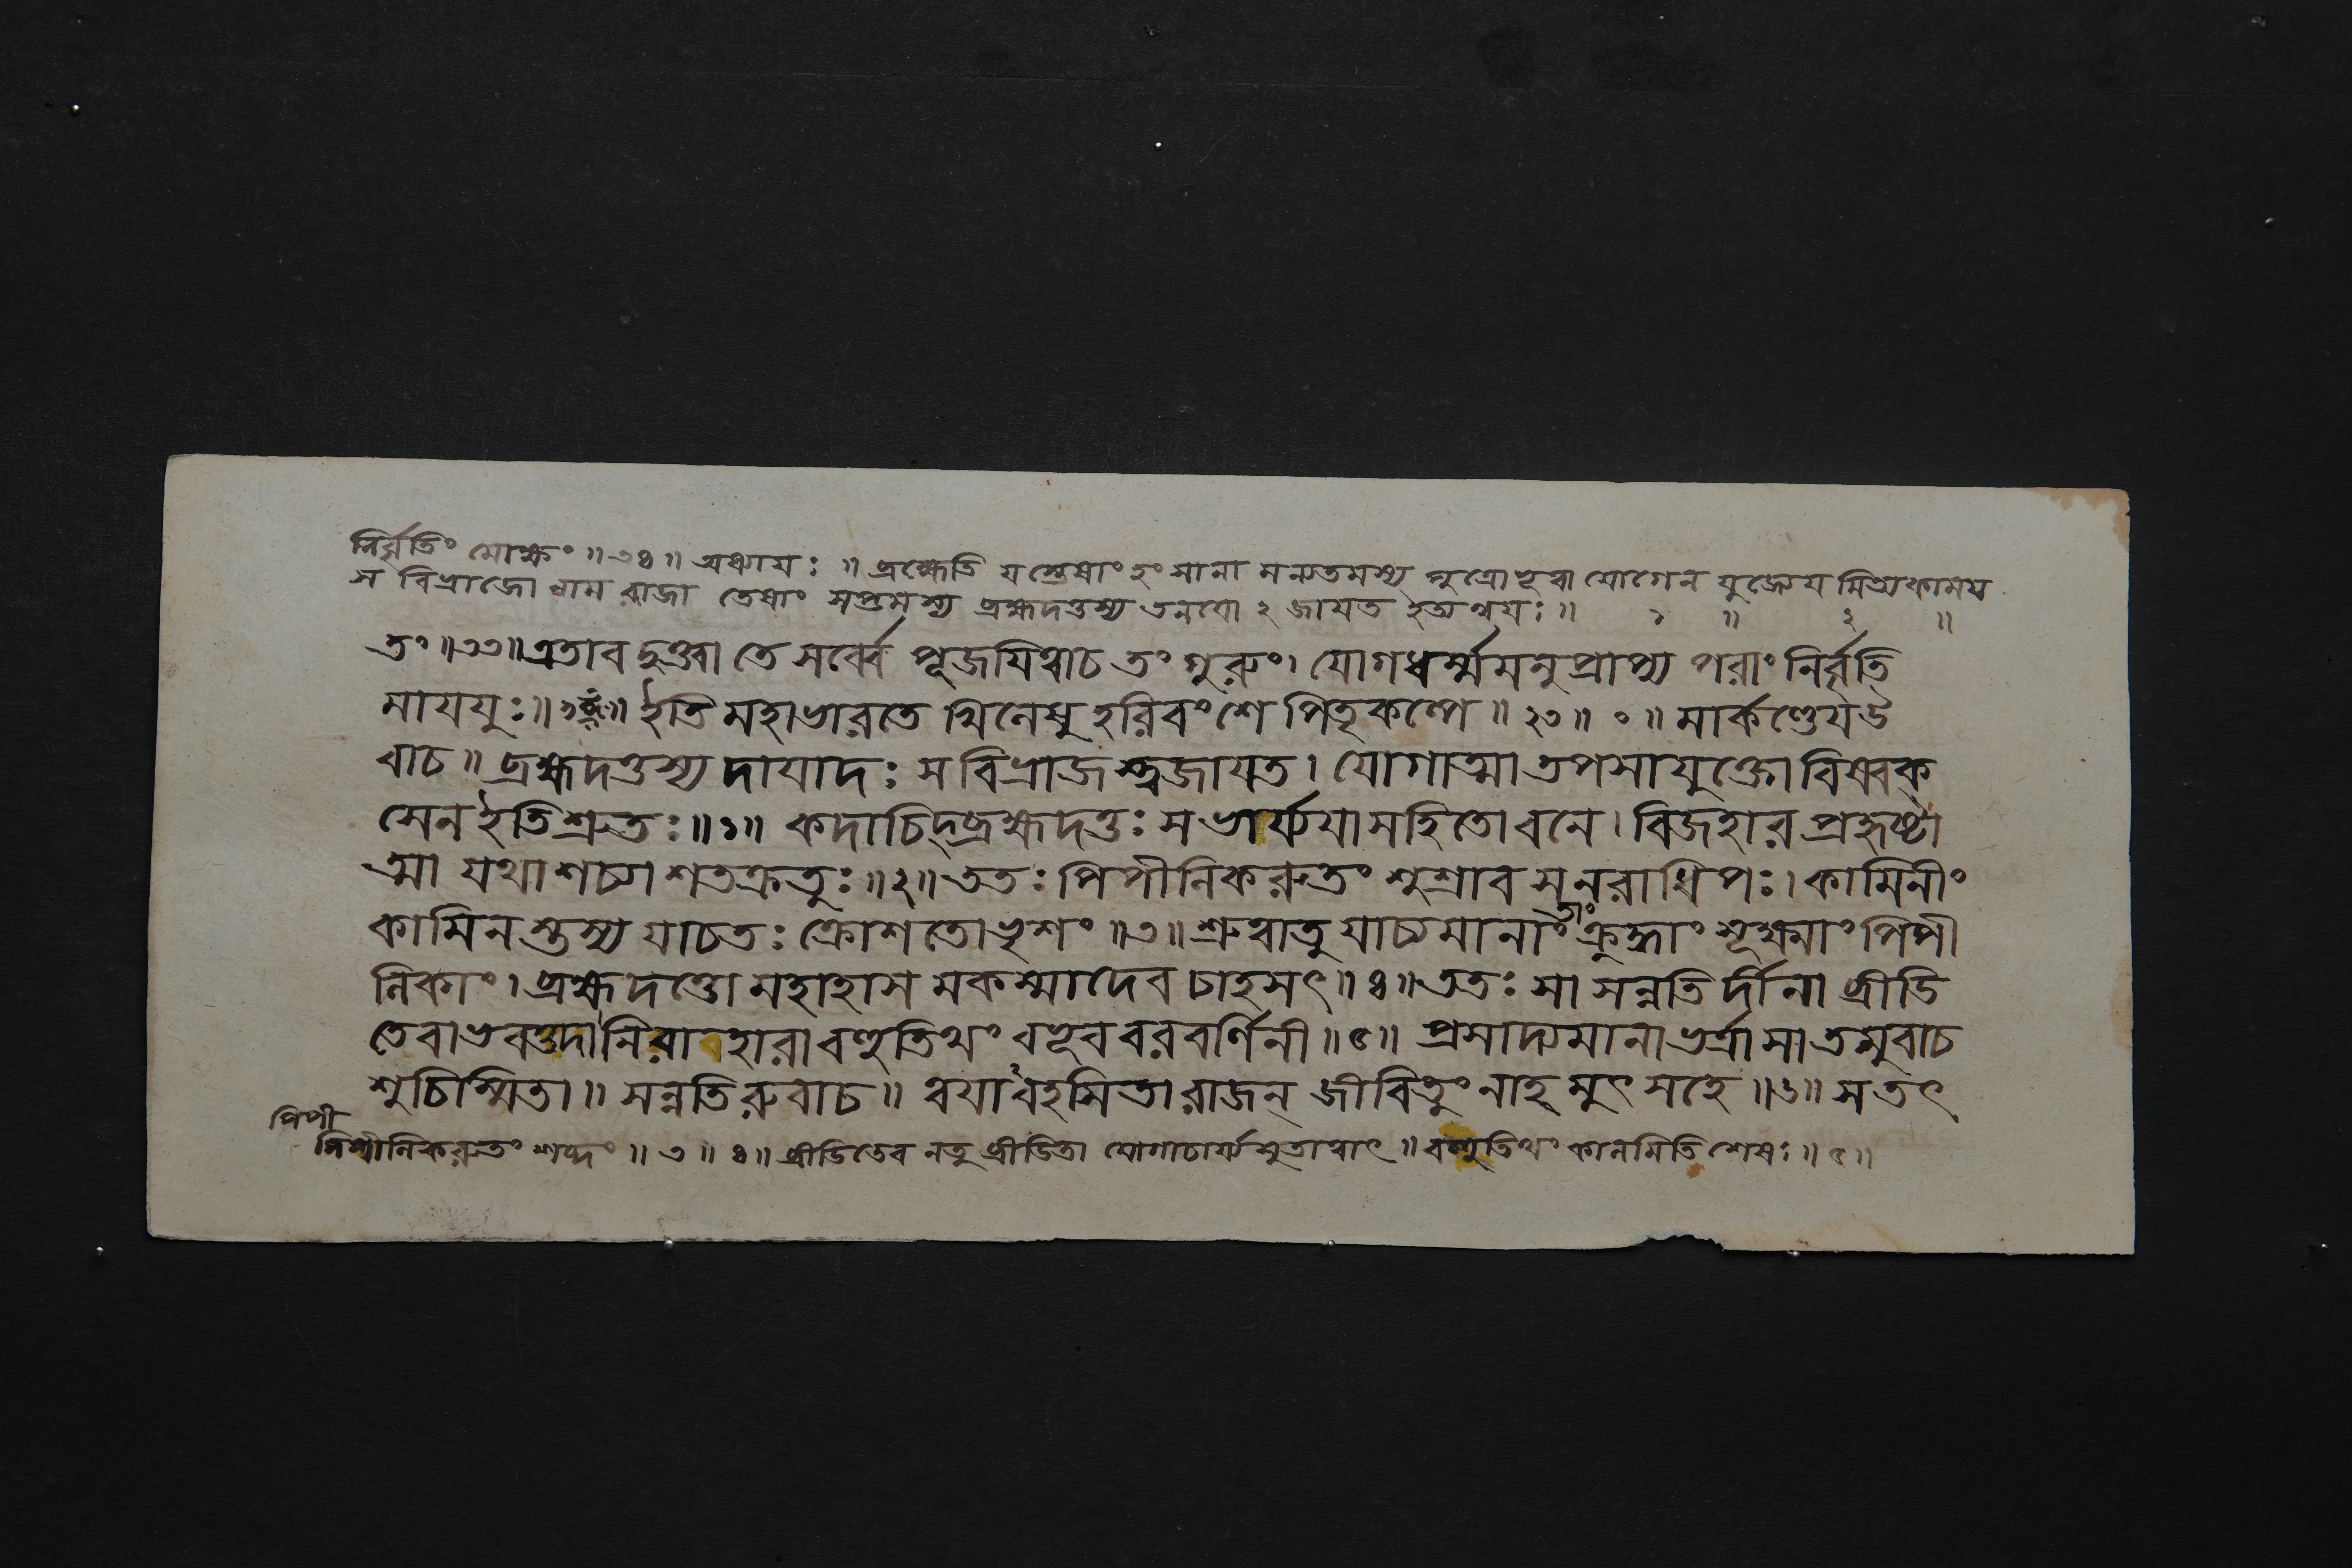 নির্বৃতিং মোক্ষং ॥ ৩৪ ॥ অধ্যায়ঃ ॥ ব্রহ্মেতি যস্তেষাং হংসানা মন্যতমস্য পুত্রো ভূত্বা যোগেন যুজ্যেয়
স বিভ্রাজো নাম রাজা তেষাং সপ্তমস্য ব্রহ্মদত্তস্য তনয়ো ২ জায়ত ইত্যন্বয়ঃ ॥ ১ ॥ ২ ॥
তং ॥ ৩৩ ॥ এতাবদুক্ত্বা তে সর্ব্বে পূজয়িত্বাচ তং গুরুং। যোগধর্ম্মমনুপ্রাপ্য পরাং নির্বৃতি
মাযযুঃ ॥ ইতি মহাভারতে খিলেষু হরিবংশে পিতৃকল্পে ॥ ২৩ ॥ ০ ॥ মার্কণ্ডেয়উ
বাচ ॥ ব্রহ্মদত্তস্য দায়াদঃ স বিভ্রাজস্ত্বজায়ত। যোগাত্মা তপসাযুক্তো বিষ্বক্
সেন ইতিশ্রুতঃ ॥ ১ ॥ কদাচিদ্ব্রহ্মদত্তঃ সভার্য্যয়া সহিতো বনে। বিজহার প্রহৃষ্টা
ত্মা যথা শচ্যা শতক্রতুঃ ॥ ২ ॥ ততঃ পিপীলিকরুতং শুশ্রাব স নরাধিপঃ। কামিনীং
কামিনস্তস্য যাচতঃ ক্রোশতো ভৃশং ॥ ৩ ॥ শ্রুত্বাতু যাচ্যমানাং তাং ক্রুদ্ধাং সূক্ষ্মাং পিপী
লিকাং। ব্রহ্মদত্তো মহাহাস মকস্মাদেব চাহসৎ ॥ ৪ ॥ ততঃ সা সন্নতির্দীনা ব্রীডি
তেবাভবত্তদা নিরাহারা বহুতিথং বভূব বরবর্ণিনী ॥ ৫ ॥ প্রসাদ্যমানা ভর্ত্রা সা তমুবাচ
শুচিস্মিতা ॥ সন্নতিরুবাচ ॥ ত্বয়াবহসিতা রাজন্ জীবিতুং নাহমুৎসহে ॥ ৬ ॥ স তৎ
পিপী
পিপীলিকরুতং শব্দং ॥ ৩ ॥ ৪ ॥ ব্রীডিতেব নতু ব্রীডিতা যোগাচার্য্যসুতাত্বাৎ ॥ বহুতিথং কালমিতি শেষঃ ॥ ৫ ॥